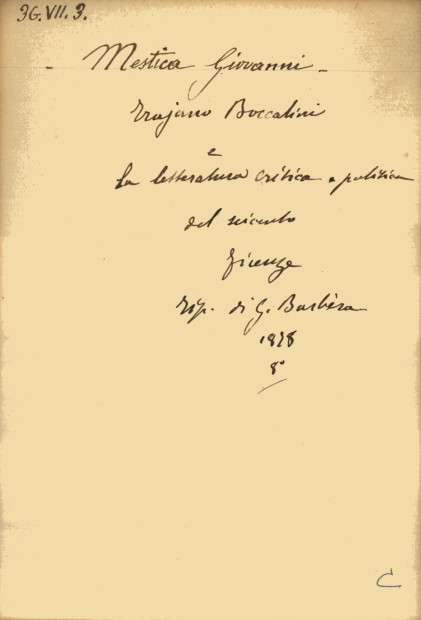 36.VII.3.
- Mestica Giovanni -
Trajano Boccalini
e
La letteratura critica e politica
del seicento
Firenze
Tip. di G. Barbèra
1878
8°
C